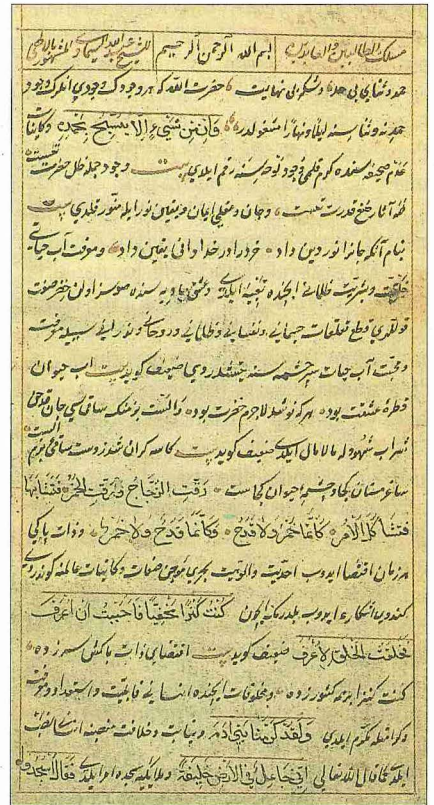 مسلك الطالبين والعابدين بسم الله الرحمن الرحيم للشيخ عبد الله السيماوى المشهور بالالهى
حمد وثناى بى حد وشكر بى نهايت حضرت الله كه هر وجودك وجودى
حمدنه وثناسنه ليلا ونهارا مشغولدر وان من شىء الا يسبح بحمده وكائنات
عدم صحيفه سنده كرم قلمى وجود سنه رقم ايلدى بيت وجود جمله ظل حضرت تست
همه آثار صنع قدرت تست وجان وعقلى ايمان ويقين نوريله منور قلدى بيت
بنام آنكه جانرا نور دين داد خرد را در خدا دانى يقين داد ومعرفت آب حياتى
وبشريت ظلماتى ايچنده تعبيه ايلدى وعشق باديه سنده صوسز اولن خضر صفت
قوللرى قطع تعلقات جسمانى ونفسانى وظلمانى وروحانى ونورانى سببيله معرفت
ومحبت آب حيات سرچشمه سنه يتشدردى ضعيف كويد بيت آب حيوان
قطره عشقت بود هركه نوشد لاجرم خضرت بود والست بزمنك ساقيسى جان قدحى
شراب شهودله مالامال ايلدى ضعيف كويد بيت كاسه كران شد ز دست ساقى بزم الست
ساغر مستان كجا و چشمه حيوان كجاست رقت الزجاج ورقت الخمر فتشابها
فتشاكل الامر فكانما خمر ولا قدح وكانما قدح ولا خمر وذات پاكى
هر زمان اقتضا ايدوب احديت والوهيت بحرى موجى صفات وكائنات عالمنه كوندردى
كندوى آشكاره ايدوب بلدرمك ايچون كنت كنزا مخفيا فاحببت ان اعرف
فخلقت الخلق لاعرف ضعيف كويد بيت اقتضاى ذات پاكش سر زده
كنت كنزا بر كشور زده ومخلوقات ايچنده انسانى قابليت واستعداد ومعرفت
وكرامتله مكرم ايلدى ولقد كرمنا بنى آدم ونيابت وخلافت منصبنه انسانى نصب
ايلدى كما قال الله تعالى انى جاعل فى الارض خليفة وملائكه يه سجده امر ايلدى فقال اسجدوا